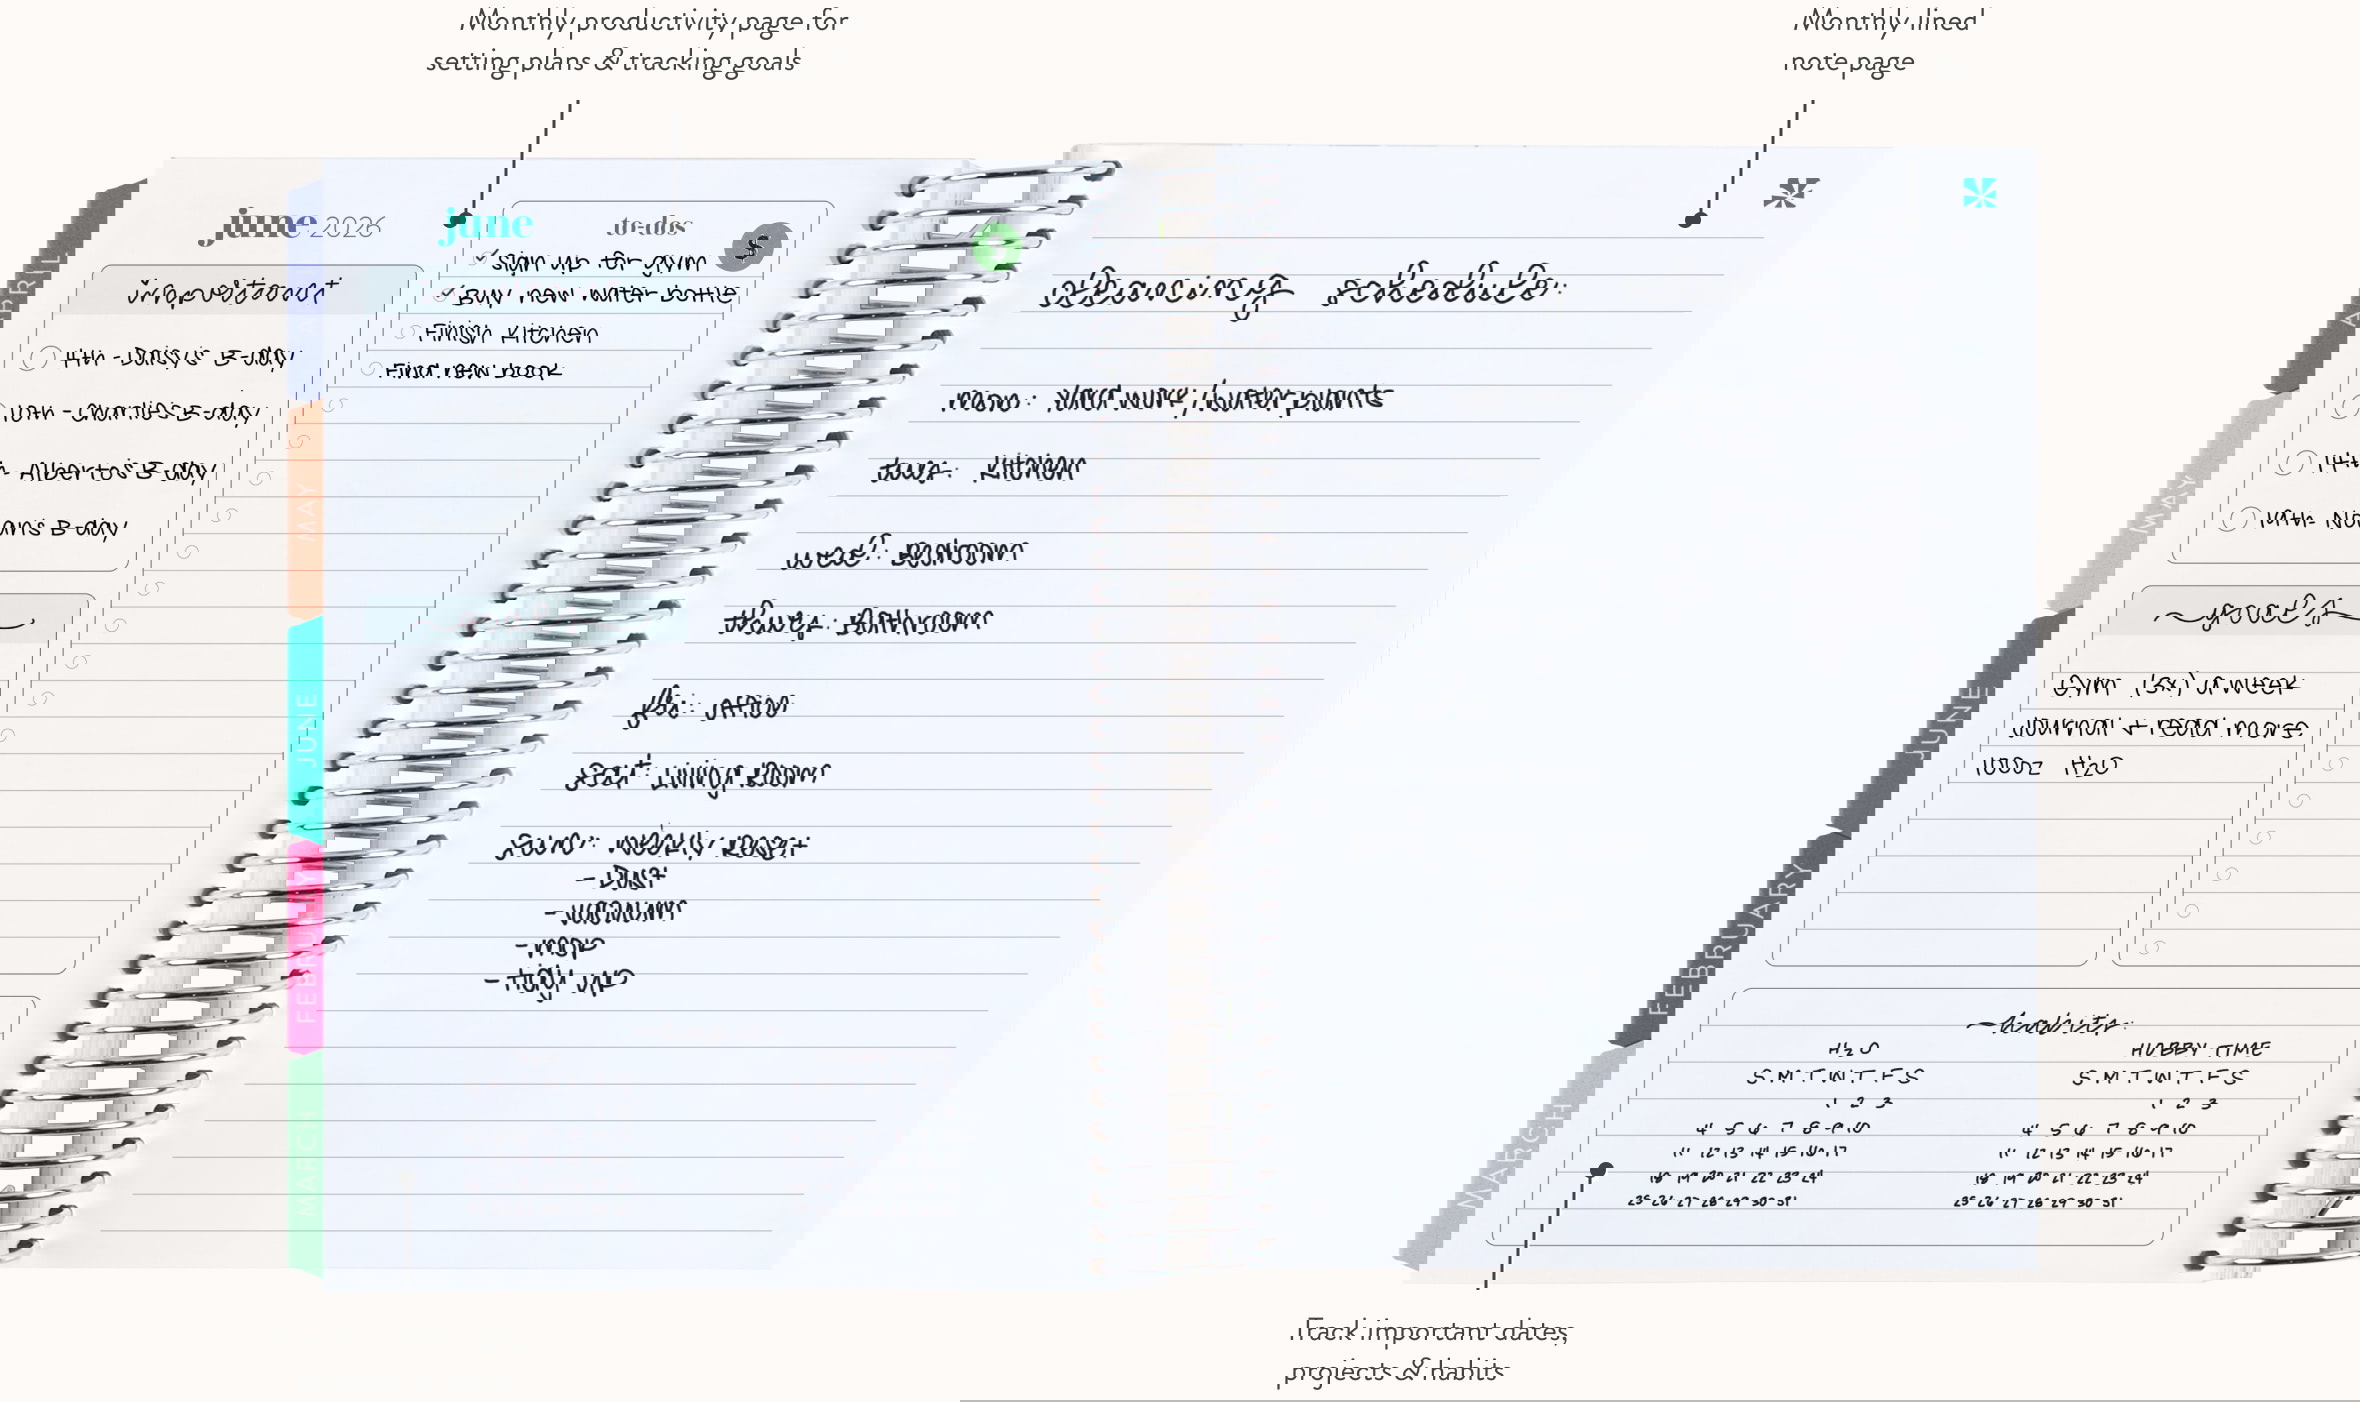 Monthly productivity page for
setting plans & tracking goals
Monthly lined
note page
june 2026
june
important
4th - Daisy's B-day
10th - Charlie's B-day
Alberto's B-day
B-day
to-dos
$
Sign up for gym
Buy new water bottle
Finish Kitchen
Find new book
cleaning schedule:
mon: Yard work/water plants
tues: Kitchen
wed: Bedroom
thurs: Bathroom
fri: Office
sat: Living Room
sun: Weekly Reset
- Dust
- Vacuum
- Mop
- Tidy up
APRIL
MAY
JUNE
FEBRUARY
MARCH
MAY
JUNE
FEBRUARY
MARCH
14th
19th-
goals
Gym (3x) a week
Journal + read more
100oz H2O
habits
H2O
S M T W T F S
1 2 3
4 5 6 7 8 9 10
11 12 13 14 15 16 17
18 19 20 21 22 23 24
25 26 27 28 29 30 31
HOBBY TIME
S M T W T F S
1 2 3
4 5 6 7 8 9 10
11 12 13 14 15 16 17
18 19 20 21 22 23 24
25 26 27 28 29 30 31
Track important dates,
projects & habits